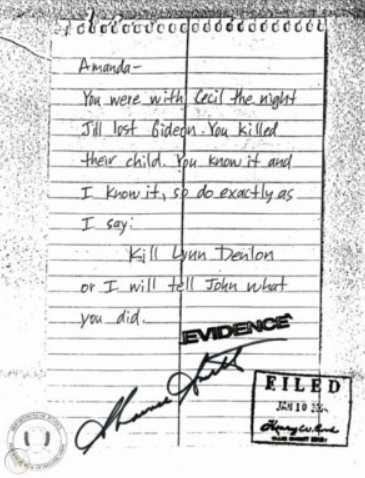 Amanda-
You were with Cecil the night
Jill lost Gideon. You killed
their child. You know it and
I know it, so do exactly as
I say:
Kill Lynn Denlon
or I will tell John what
you did.
EVIDENCE
FILED
JAN 10